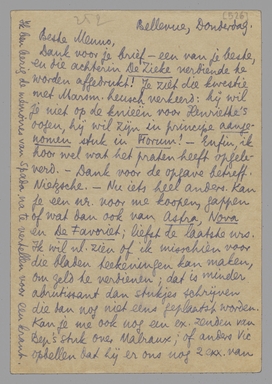 252
(5/26)
Bellevue, Donderdag.
Beste Menno,
Dank voor je brief — een van je beste,
en die achterin De Zieke verdiende te
worden afgedrukt! Je ziet die kwestie
met Marsm. heusch verkeerd: hij wil
je niet op de knieën voor Henriette's
oogen, hij wil zijn in principe aange-
nomen stuk in Forum! — Enfin, ik
hoor wel wat het praten heeft opgele-
verd. — Dank voor de opgave betreff.
Nietzsche. — Nu iets heel anders. Kan
je een nr. voor me koopen, gappen
of wat dan ook van Astra, Nova
en De Favoriet; liefst de laatste nrs.
Ik wil nl. zien of ik misschien voor
die bladen teekeningen kan maken,
om geld te verdienen; dat is minder
abrutissant dan stukjes schrijven
die dan nog niet eens geplaatst worden.
Kan je me ook nog een ex. zenden van
Bep's stuk over Malraux; of anders Vic
opbellen dat hij er ons nog 2 exx. van
Ik ben bezig de mémoires van Spada na te vertellen voor een krant.